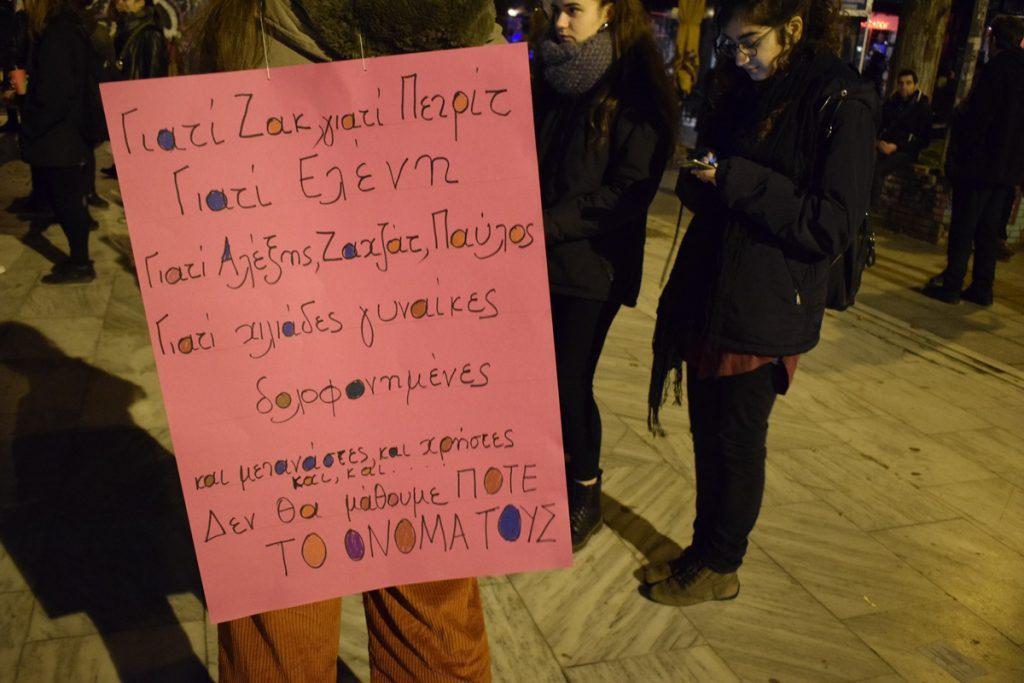 Γιατί Ζακ, γιατί Πετρίτ
Γιατί Ελένη
Γιατί Αλέξης, Ζαχζάτ, Παύλος
Γιατί χιλιάδες γυναίκες
δολοφονημένες
και μετανάστες, και χρήστες
και, και.....
Δεν θα μάθουμε ΠΟΤΕ
ΤΟ ΟΝΟΜΑ ΤΟΥΣ